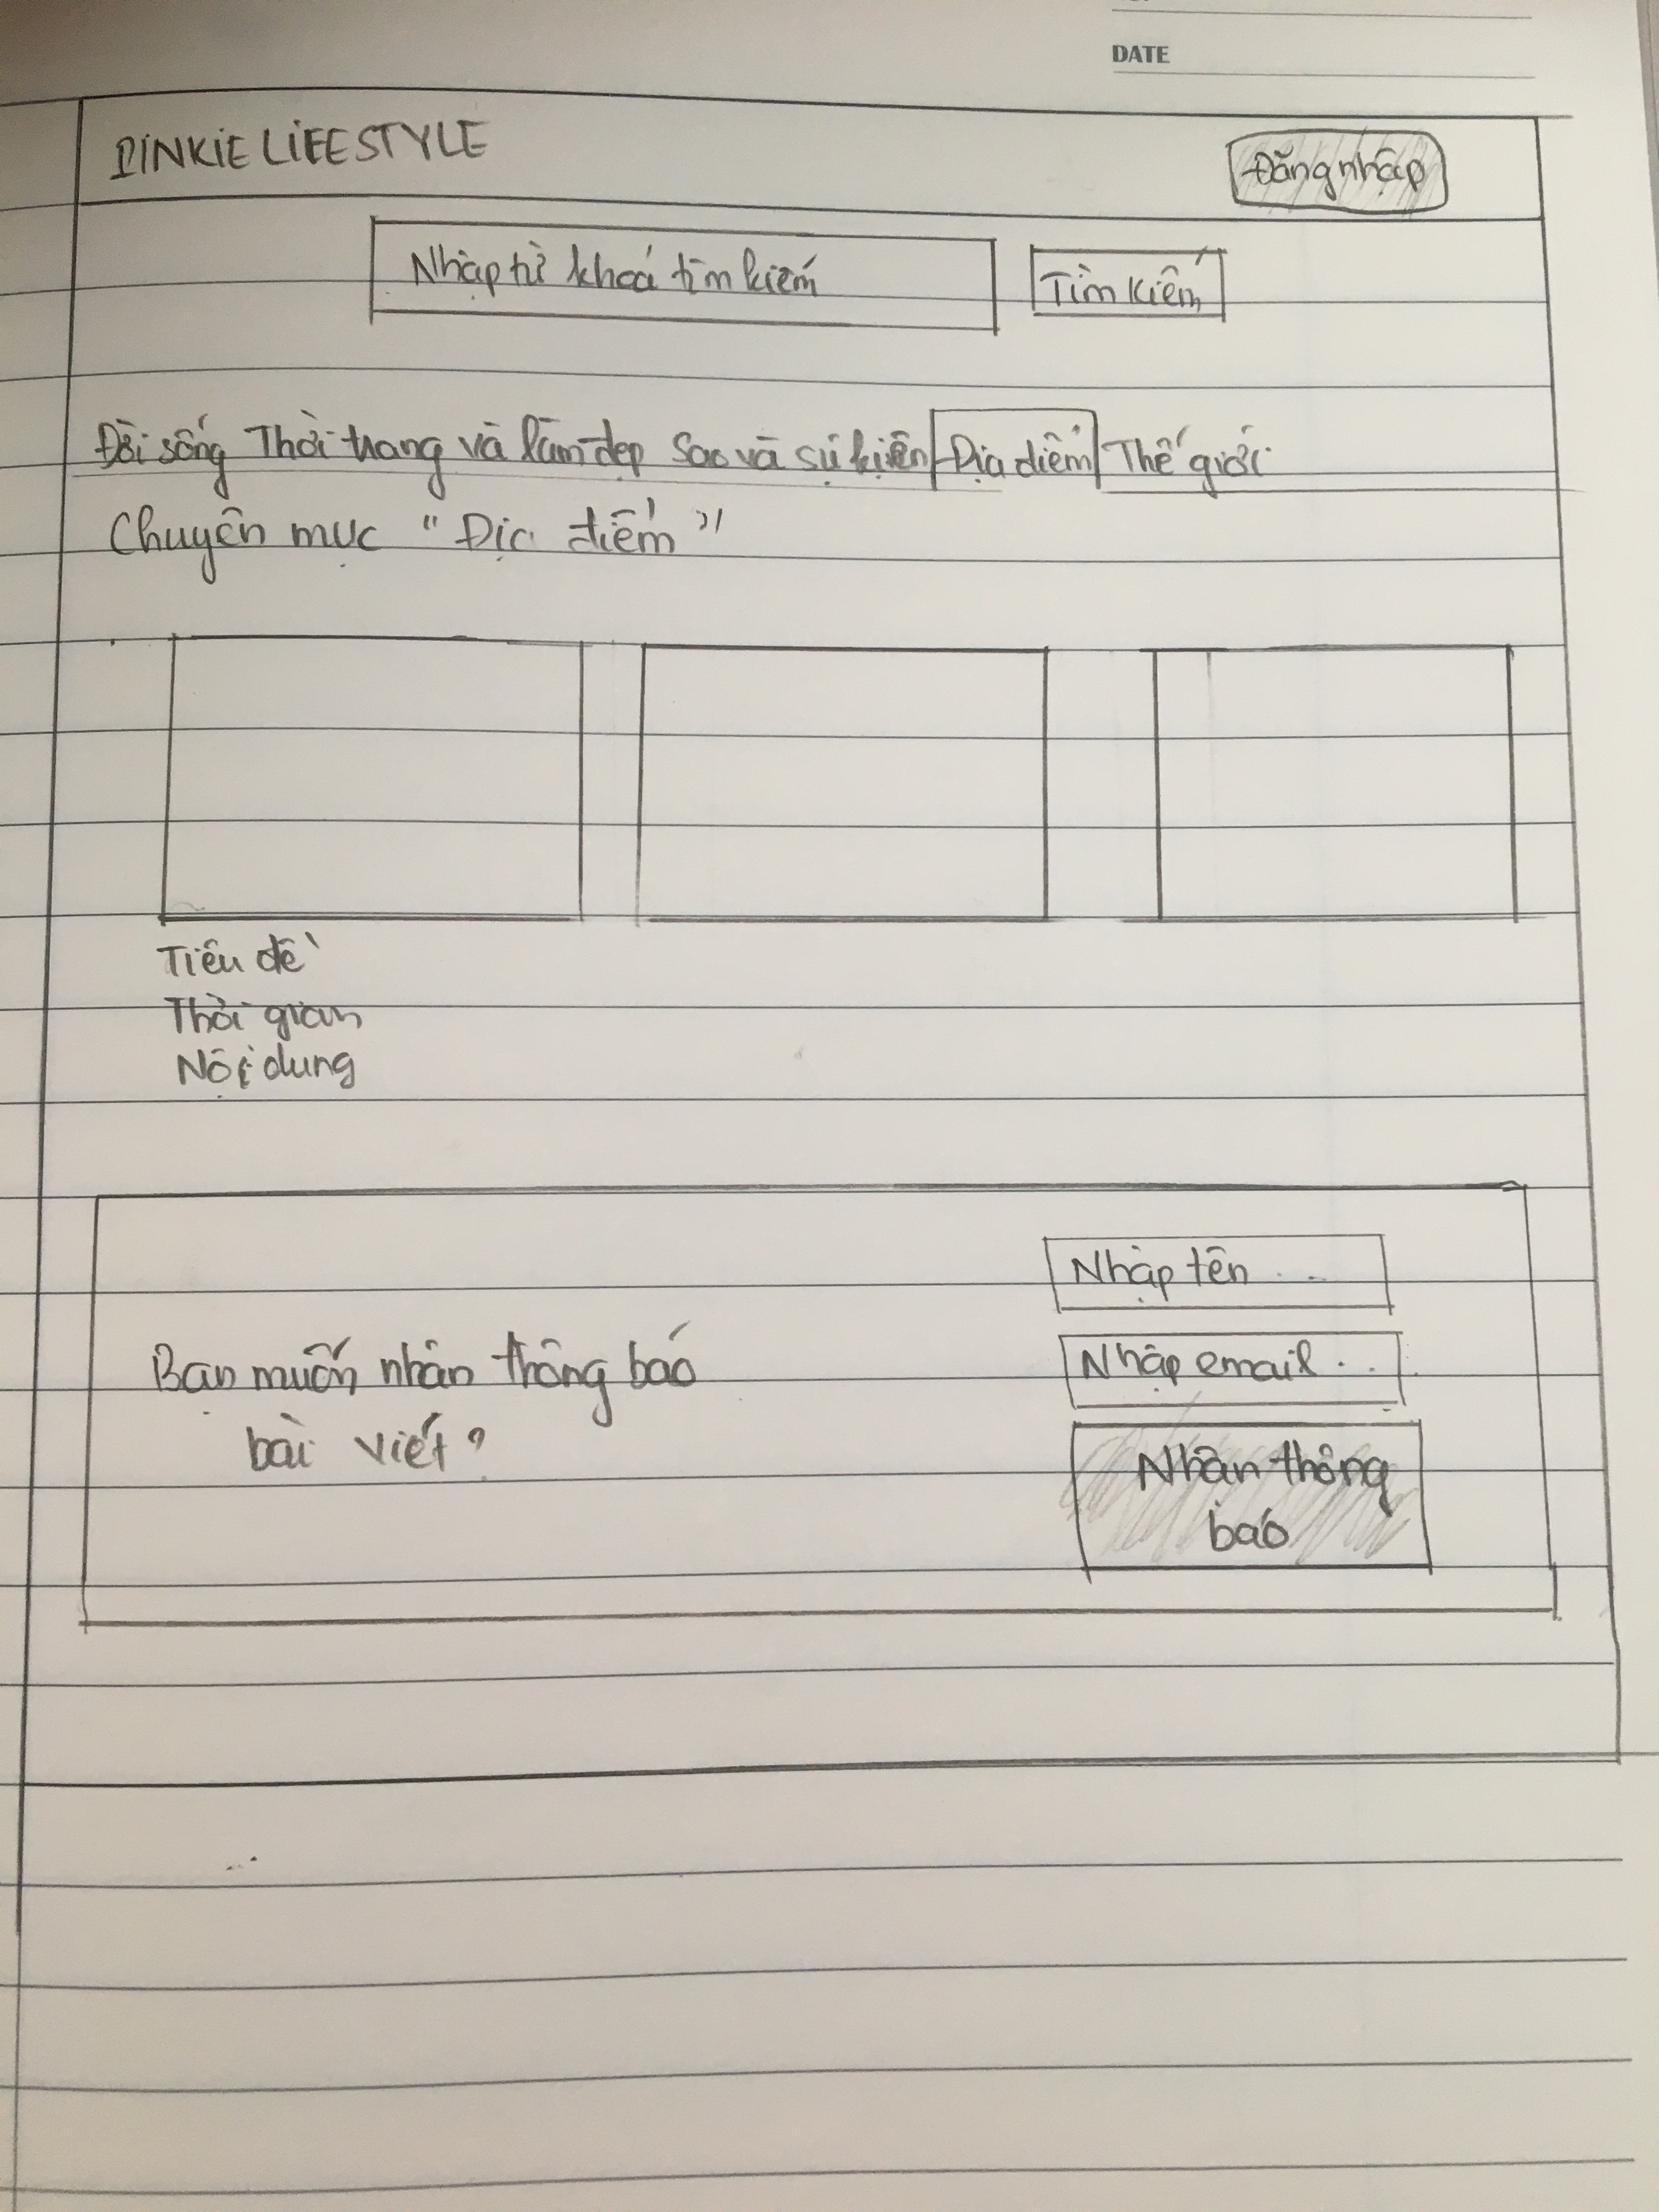 DATE
PINKIE LIFESTYLE
Đăng nhập
Nhập từ khoá tìm kiếm
Tìm kiếm
Đời sống Thời trang và làm đẹp Sao và sự kiện Địa điểm Thế giới
Chuyên mục "Địa điểm"
Tiêu đề
Thời gian
Nội dung
Nhập tên ...
Nhập email ...
Bạn muốn nhận thông báo
bài viết?
Nhận thông
báo